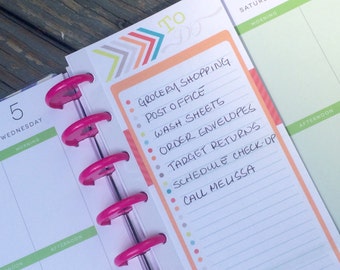 TO
GROCERY SHOPPING
POST OFFICE
WASH SHEETS
ORDER ENVELOPES
TARGET RETURNS
SCHEDULE CHECK-UP
CALL MELISSA
5
WEDNESDAY
MORNING
AFTERNOON
SATURDAY
MORNING
AFTERNOON